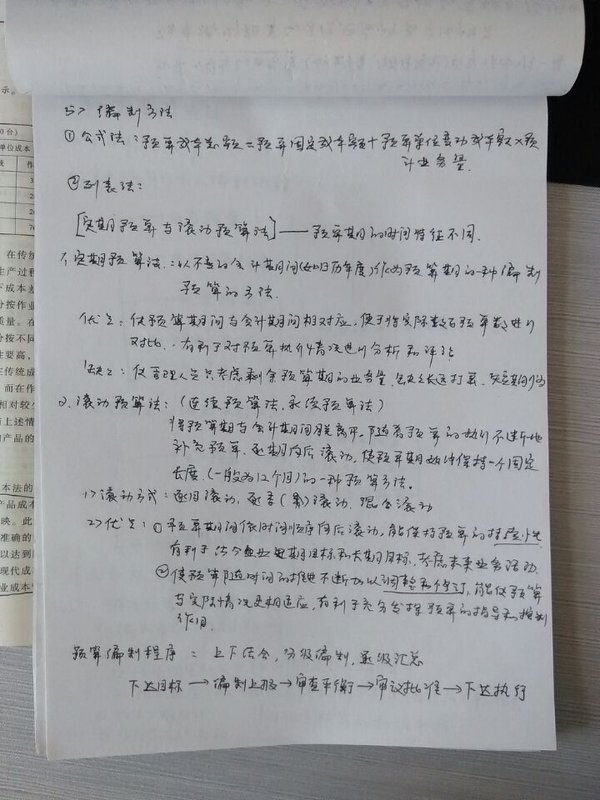 3> 编制方法
① 公式法：预算成本总额=预算固定成本额+预算单位变动成本额×预
计业务量.
② 列表法：
[定期预算与滚动预算法]——预算期的时间特征不同.
定期预算法：以不变的会计期间(如日历年度)作为预算期的一种编制
预算的方法.
优点：使预算期间与会计期间相对应，便于将实际数与预算数进行
对比，有利于对预算执行情况进行分析和评价
缺点：使管理人员只考虑剩余预算期的业务量，缺乏长远打算，短期行为
2. 滚动预算法：(连续预算法、永续预算法)
将预算期与会计期间脱离开，随着预算的执行不断地
补充预算，逐期向后滚动，使预算期始终保持一个固定
长度(一般为12个月)的一种预算方法.
1> 滚动方式：逐月滚动，逐季(季)滚动，混合滚动
2> 优点：① 预算期间依时间顺序向后滚动，能保持预算的持续性
有利于结合企业近期目标和长期目标，考虑未来业务活动.
② 使预算随时间的推进不断加以调整和修订，能使预算
与实际情况更相适应，有利于充分发挥预算的指导和控制
作用.
预算编制程序：上下结合，分级编制，逐级汇总
下达目标→编制上报→审查平衡→审议批准→下达执行